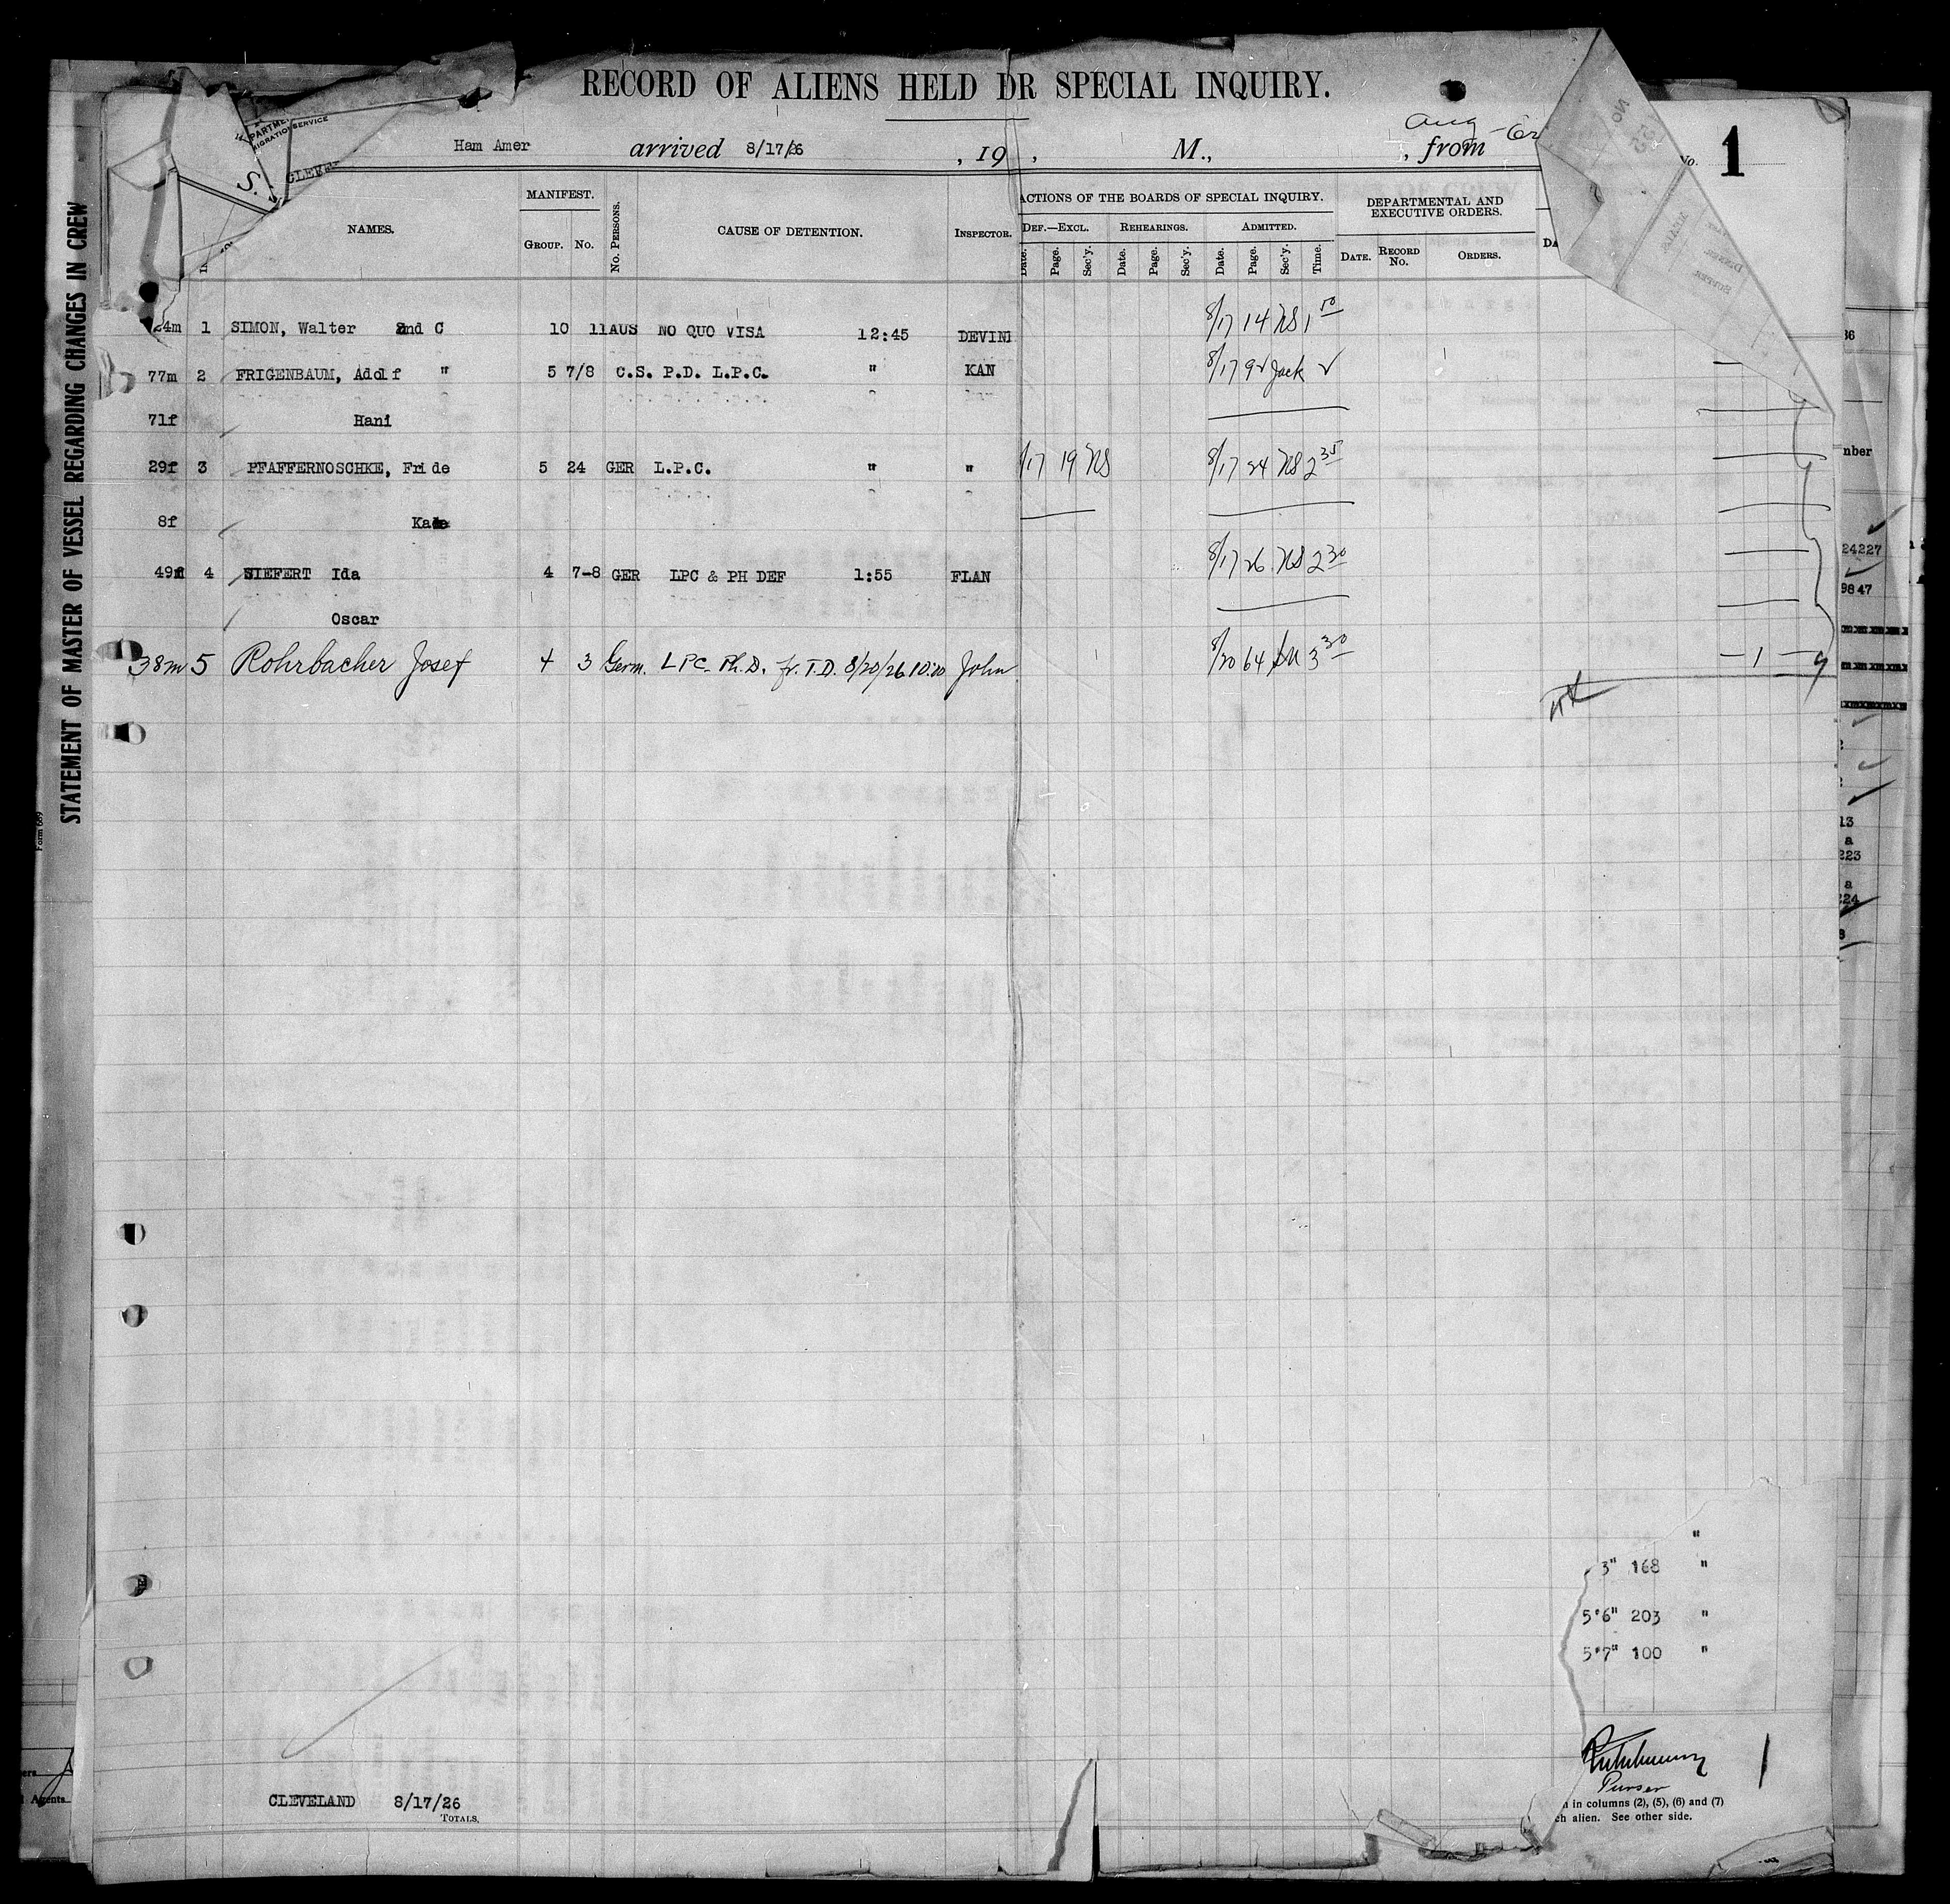 RECORD OF ALIENS HELD OR SPECIAL INQUIRY.
Ham Amer arrived 8/17/26 , 19 , M., , from
No. 1
S. S.
CLEVE
NAMES. MANIFEST. GROUP. No. No. PERSONS. CAUSE OF DETENTION. INSPECTOR.
ACTIONS OF THE BOARDS OF SPECIAL INQUIRY.
DEF.—EXCL. REHEARINGS. ADMITTED.
Date. Page. Sec'y. Date. Page. Sec'y. Date. Page. Sec'y. Time.
DEPARTMENTAL AND EXECUTIVE ORDERS.
DATE. RECORD No. ORDERS.
4m 1 SIMON, Walter 2nd C 10 11 AUS NO QUO VISA 12:45 DEVINE 8/17 14 NS 1 50
77m 2 FRIGENBAUM, Adolf " 5 7/8 C.S. P.D. L.P.C. " KAN 8/17 9 Jack
71f Hani
29f 3 PFAFFERNOSCHKE, Fride 5 24 GER L.P.C. " " /17 19 NS 8/17 24 NS 2 35
8f Kade
49f 4 SIEFERT Ida 4 7-8 GER LPC & PH DEF 1:55 FLAN 8/17 26 NS 2 30
Oscar
38m 5 Rohrbacher Josef 4 3 Germ. LPC. Ph.D. fr. T.D. 8/20/26 10:00 John 8/20 64 3 30 — 1 — 9
STATEMENT OF MASTER OF VESSEL REGARDING CHANGES IN CREW
Form 689
36
mber
24227
9847
13
a
223
a
224
3" 168 "
5'6" 203 "
5'7" 100 "
Purser
1
n in columns (2), (5), (6) and (7)
ch alien. See other side.
CLEVELAND 8/17/26
TOTALS.
Agents